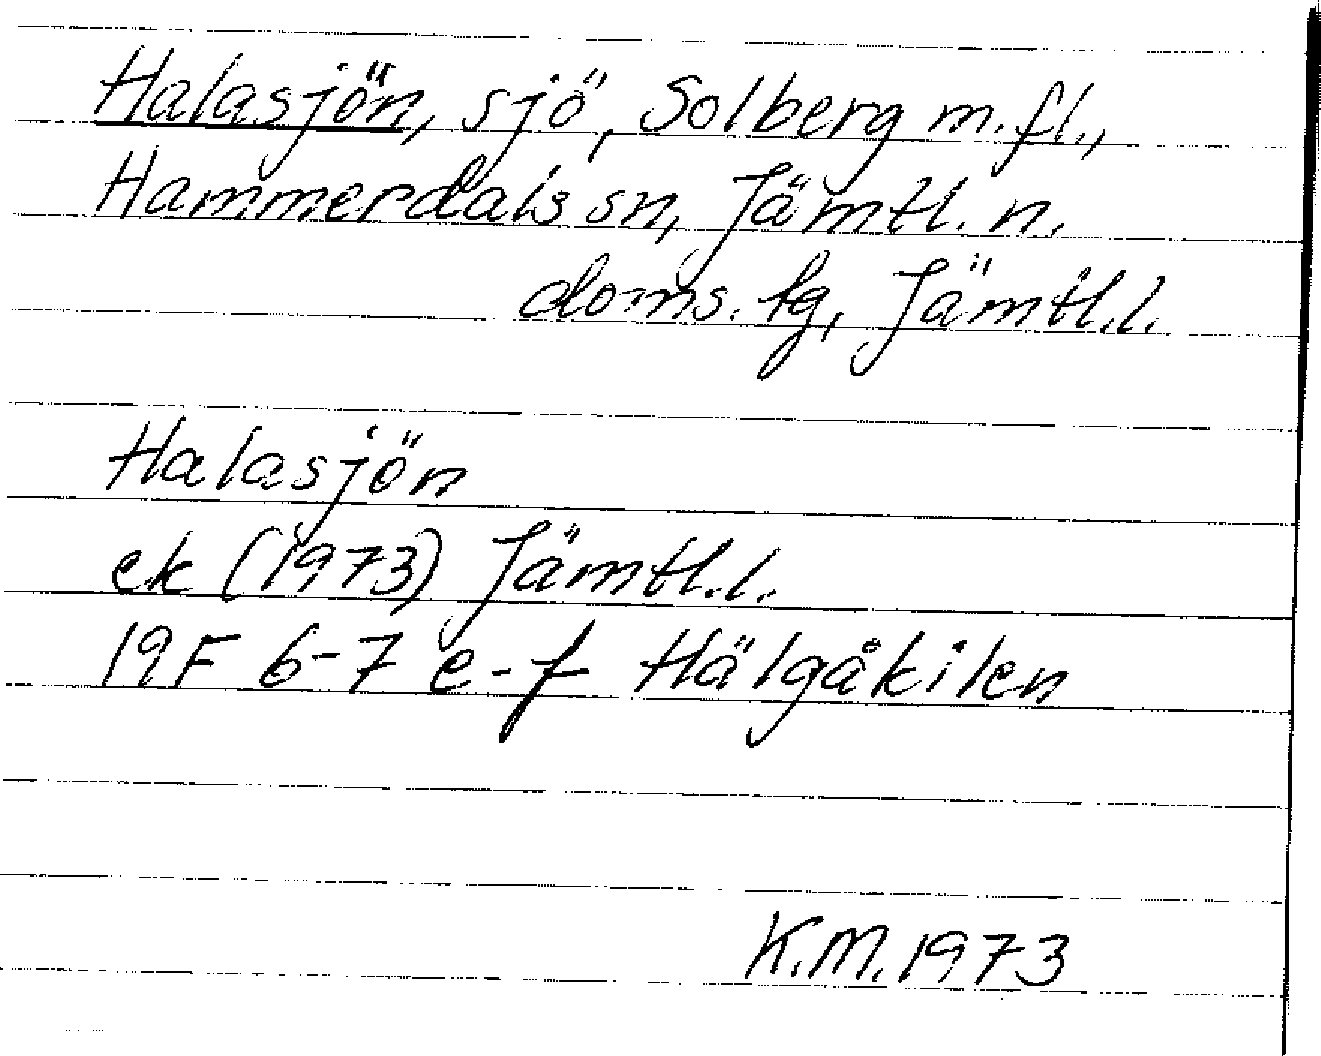 Halasjön, sjö, Solberg m.fl.,
Hammerdals sn, Jämtl. n.
doms. tg, Jämtl.l.
Halasjön
ek (1973) Jämtl.l.
19F 6-7 e-f Hälgåkilen
K.M. 1973